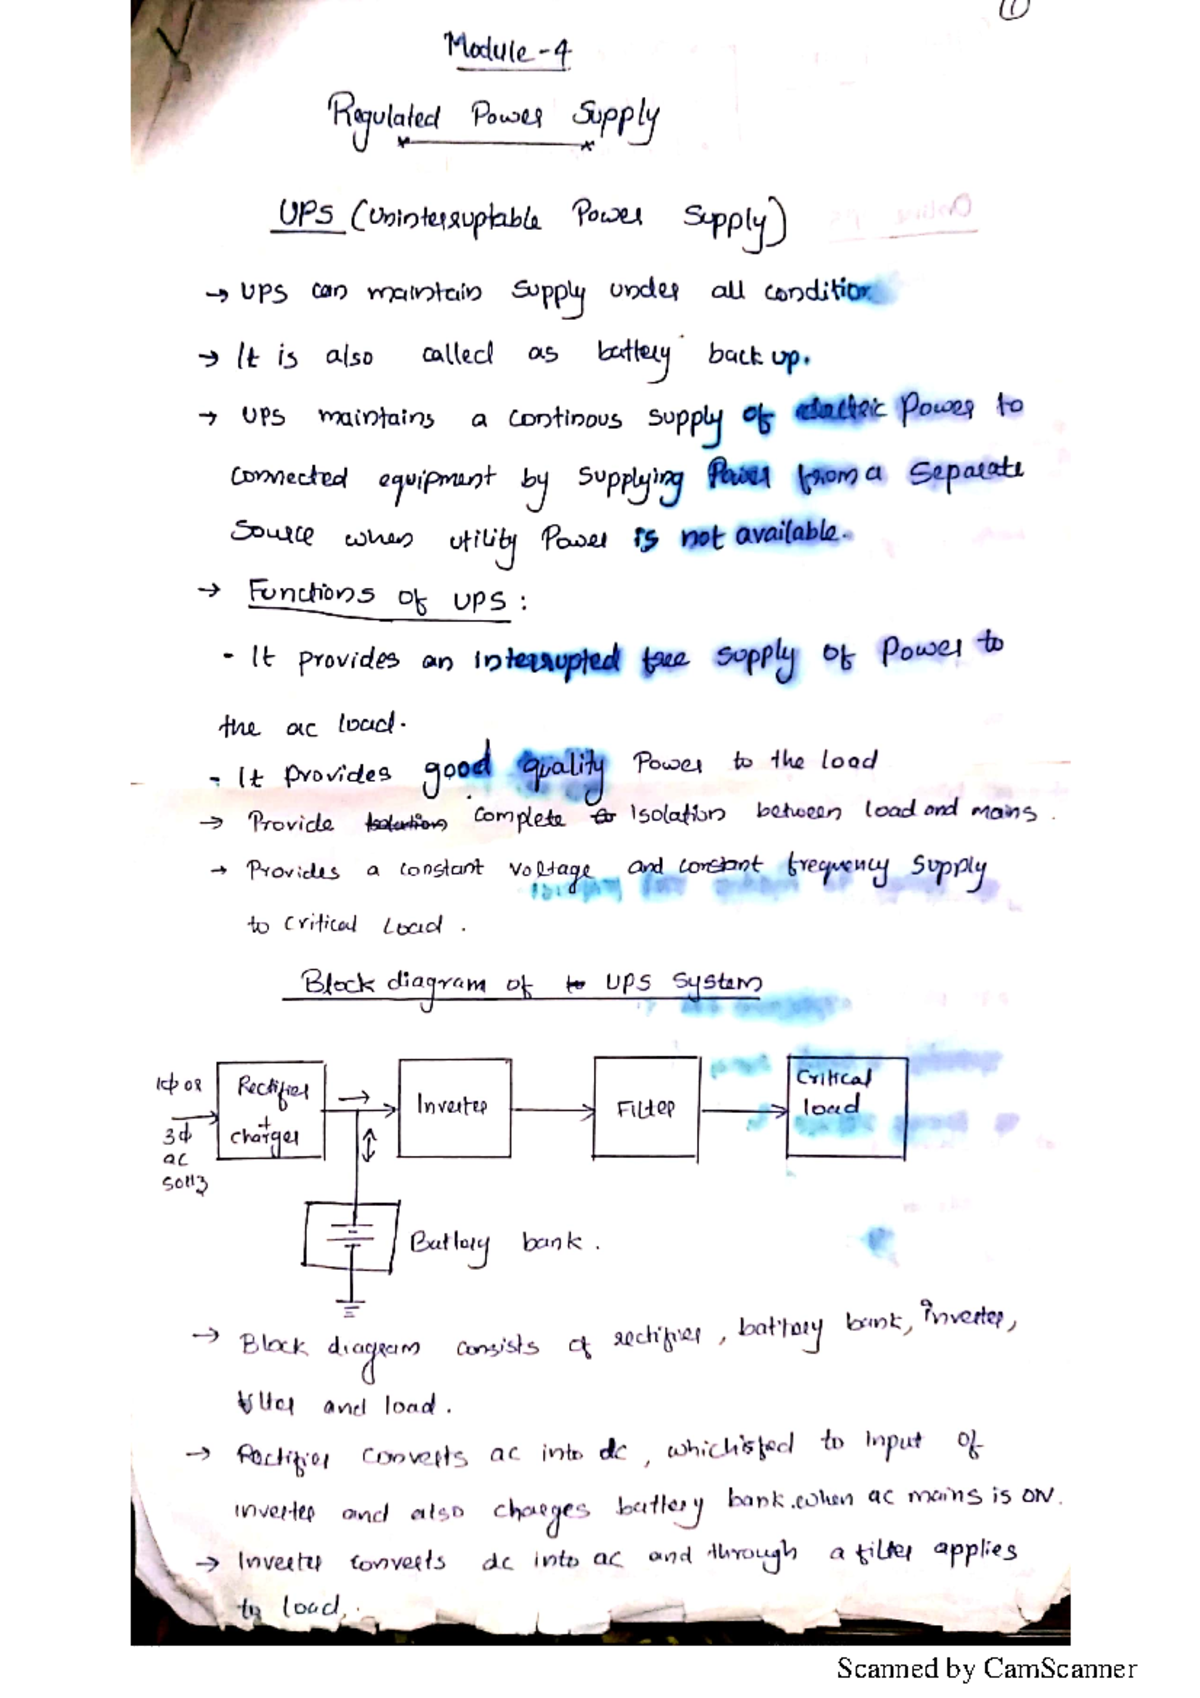 1
Module-4
Regulated Power Supply
UPS (Uninterruptable Power Supply)
→ UPS can maintain supply under all condition
→ It is also called as battery back up.
→ UPS maintains a continous supply of electric power to
connected equipment by supplying Power from a separate
source when utility Power is not available.
→ Functions of UPS :
- It provides an interrupted free supply of Power to
the ac load.
- It provides good quality Power to the load
→ Provide Isolation complete to Isolation between load and mains.
→ Provides a constant voltage and constant frequency supply
to critical Load.
Block diagram of to UPS System
1ф or
3ф
ac
50Hz
Rectifier
+
charger
Inverter
Filter
Critical
load
Battery bank.
→ Block diagram consists of rectifier, battery bank, inverter,
filter and load.
→ Rectifier converts ac into dc, which is fed to input of
inverter and also charges battery bank. when ac mains is ON.
→ Inverter converts dc into ac and through a filter applies
to load.
Scanned by CamScanner